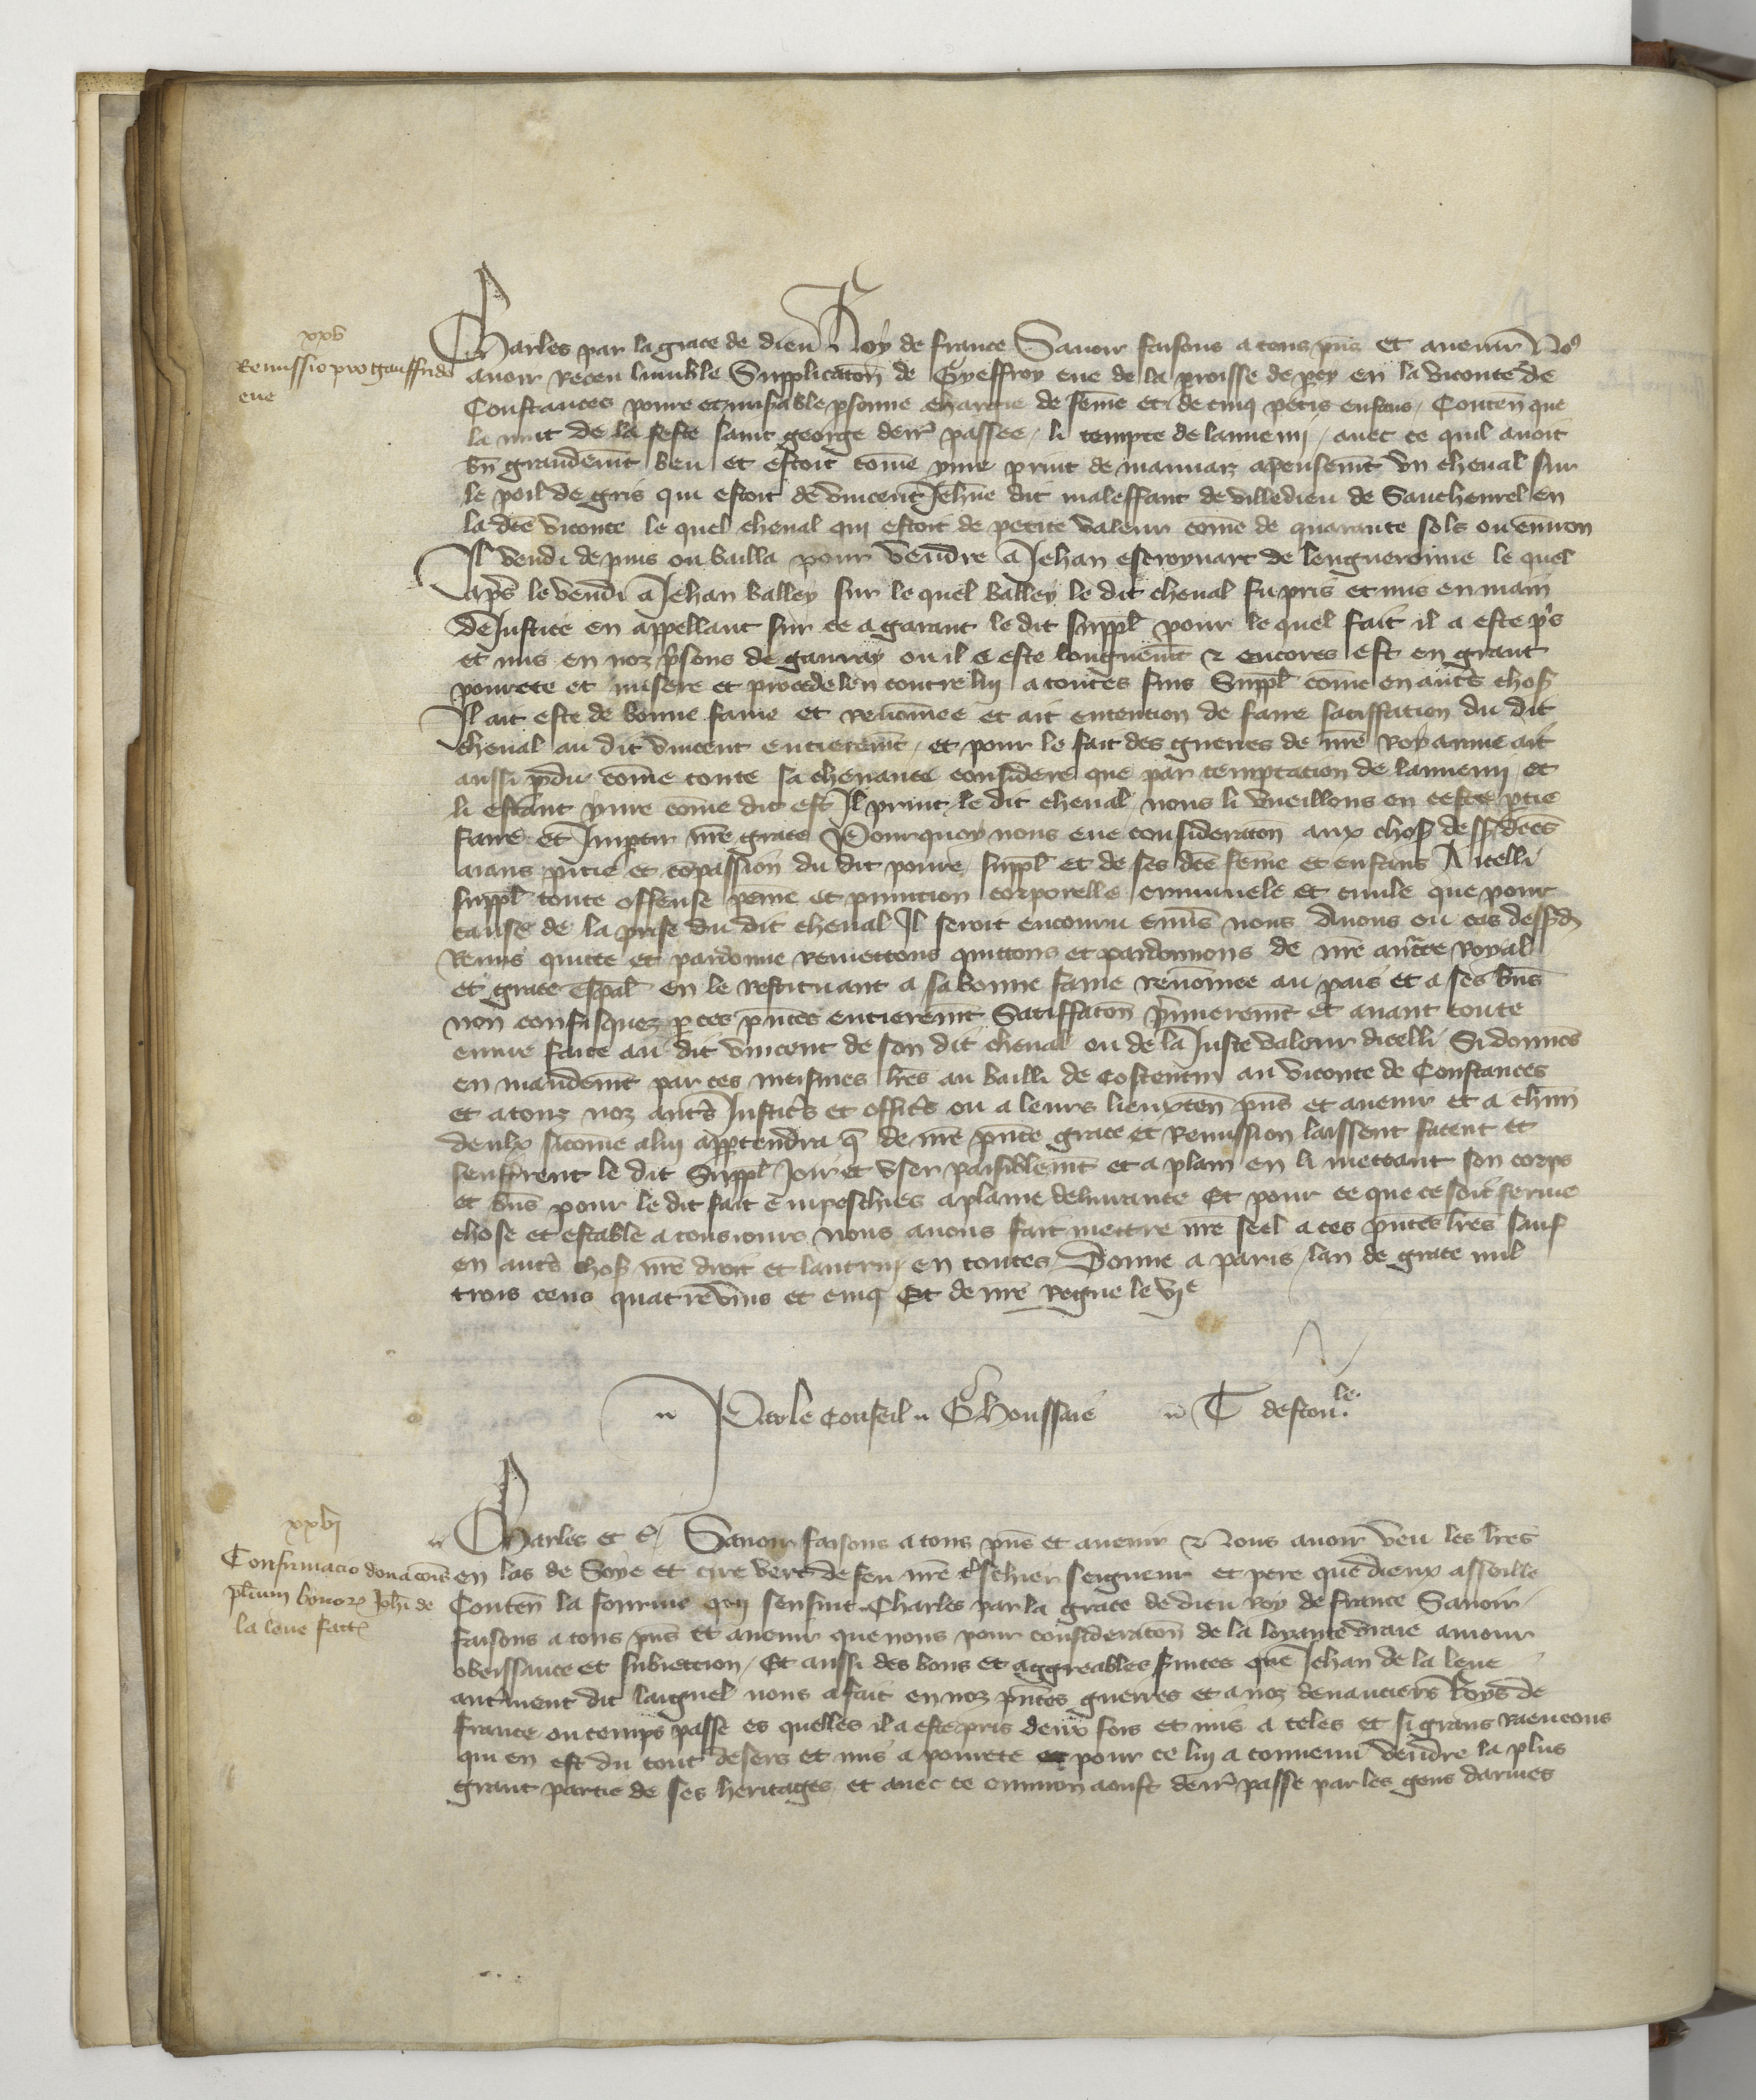 xxv
Remissio pro gauffrido
eue
Charles par la grace de dieu Roy de france Sauoir faisons a tous pñs et auenir No9
auoir receu lumble Supplicacõn de Gyeffroy eue de la proisse de pey en la viconte de
Constances poure et misable psonne chargie de feme et de cinq petis enfans, Conteñ que
la nuit de la feste saint george derr̃ passee, li tempte de lannemi, auec ce quil auoit
bñ grandemt beu et estoit come yure print de mauuaiz apensemt vn cheual sur
le poil de gris qui estoit de vincent Jehñe dit maleffant de villedieu de Saucheurel en
la dce viconte le quel cheual qui estoit de petite valeur come de quarante sols ou enuiron
Il vendi depuis ou bailla pour vendre a Jehan estoynart de lengueronne le quel
apš le vendi a Jehan balley sur le quel balley le dit cheual fu pris et mis en main
de Justice en appellant sur ce a garant le dit suppl pour le quel fait il a este pšs
et mis en noz psons de gauray ou il a este longuemt & encores est en grant
pourete et misere et procede len contre luy a toutes fins Suppl come en autš chos
Il ait este de bonne fame et renomee et ait entention de faire satiffation du dit
cheual au dit vincent entieremt, et pour le fait des guerres de nre Royaume ait
aussi pdu come toute sa cheuance considere que par temptation de lannemi et
li estant yure come dit est Il print le dit cheual nous li vueillons en ceste ptie
faire et Impartir nre grace Pourquoy nous eue consideracõn aux chos dessdces
aians pitie et copassion du dit poure suppl et de ses dce feme et enfans A icelli
suppl toute offense peine et punition corporelle criminele et ciuile que pour
cause de la prise du dit cheual Il seroit encouru enuš nous Auons ou cas dessd
Remis quitte et pardonne remettons quittons et pardonnons de nre auctte royal
et grace espal en le restituant a sa bonne fame renomee au pais et a ses bñs
non confisquez p ces pntes entieremt Satiffacõn pmieremt et auant toute
euure faicte au dit vincent de son dit cheual ou de la Juste valeur dicelli Si donnõs
en mandemt par ces meismes lres au bailli de Costentin au viconte de Constances
et a touz noz autš Justicšs et officšs ou a leurs lieuxteñ pñs et auenir et a chũn
deulx sicome a lui appartendra q de nre pnte grace et Remission laissent facent et
seuffrent le dit Suppl Joir et vser paisiblemt et a plain en li mettant son corps
et bñs pour le dit fait empeschies a plaine deliurance Et pour ce que ce soit ferme
chose et estable a tousiours nous auons fait mettre nre seel a ces pntes lres sauf
en autš chos nre droit et lautruy en toutes Donne a paris lan de grace mil
trois cens quatrevins et cinq Et de nre Regne le vje
Par le Conseil G houssaie T destouле.
xxvj
Confirmacio donacõnis
plium bonor Johi de
la leue fact
Charles et c Sauoir faisons a tous pñs et auenir Nous auoir veu les lres
en las de Soye et cire vert de feu nre tschier seigneur et pere que dieux assoille
Conteñ la fourme qui sensuit Charles par la grace de dieu roy de france Sauoir
faisons a tous pñs et auenir que nous pour consideracõn de la loyaute vraie amour
obeissance et subiection, Et aussi des bons et aggreables suices que Jehan de la leue
autrment dit laignel nous a fait en noz pntes guerres et a noz deuanciers Roys de
france ou temps passe es quelles il a este pris deux fois et mis a teles et si grans raencons
qui en est du tout desers et mis a pourete et pour ce lui a conuenu vendre la plus
grant partie de ses heritages et auec ce enuiron aoust derr̃ passe par les gens darmes